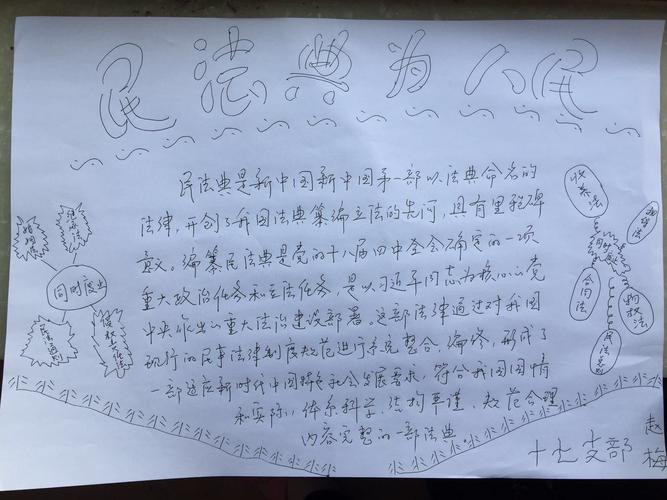 民法典为人民
民法典是新中国新中国第一部以法典命名的
法律,开创了我国法典纂编立法的先河,具有里程碑
意义。编纂民法典是党的十八届四中全会确定的一项
重大政治任务和立法任务,是以习近平同志为核心的党
中央作出的重大法治建设部署。这部法律通过对我国
现行的民事法律制度规范进行系统整合、编修,形成了
一部适应新时代中国特色社会发展要求,符合我国国情
和实际,体系科学、结构严谨、规范合理
内容完整的一部法典
婚姻法
继承法
同时废止
民法通则
侵权责任法
收养法
同时废止
担保法
合同法
物权法
民法总则
十七支部
赵梅